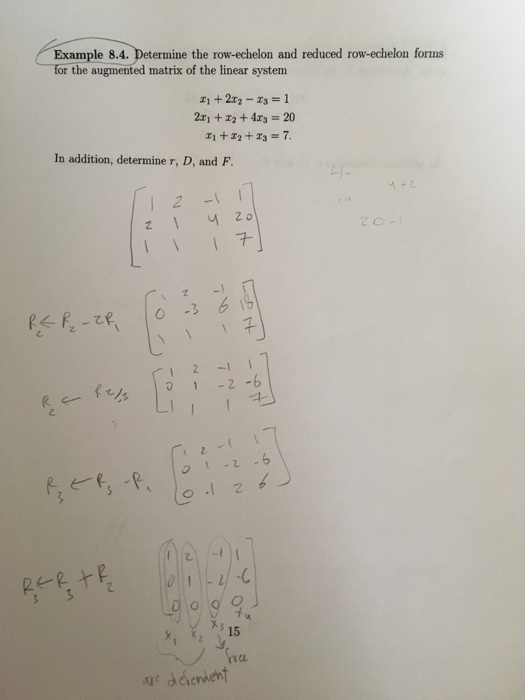 Example 8.4. Determine the row-echelon and reduced row-echelon forms
for the augmented matrix of the linear system
x₁ + 2x₂ − x₃ = 1
2x₁ + x₂ + 4x₃ = 20
x₁ + x₂ + x₃ = 7.
In addition, determine r, D, and F.
1 2 -1 1
2 1 4 20
1 1 1 7
1 2 -1 1
R₂ ← R₂ - 2R₁ 0 -3 6 18
1 1 1 7
1 2 -1 1
R₂ ← 0 1 -2 -6
1 1 1 7
1 2 -1 1
0 1 -2 -6
R₃ ← R₃ - R₁ 0 -1 2 6
1 2 -1 1
R₃ ← R₃ + R₂ 0 1 -2 -6
0 0 0 0
x₁ x₂ x₃ x₄
15
free
are dependent